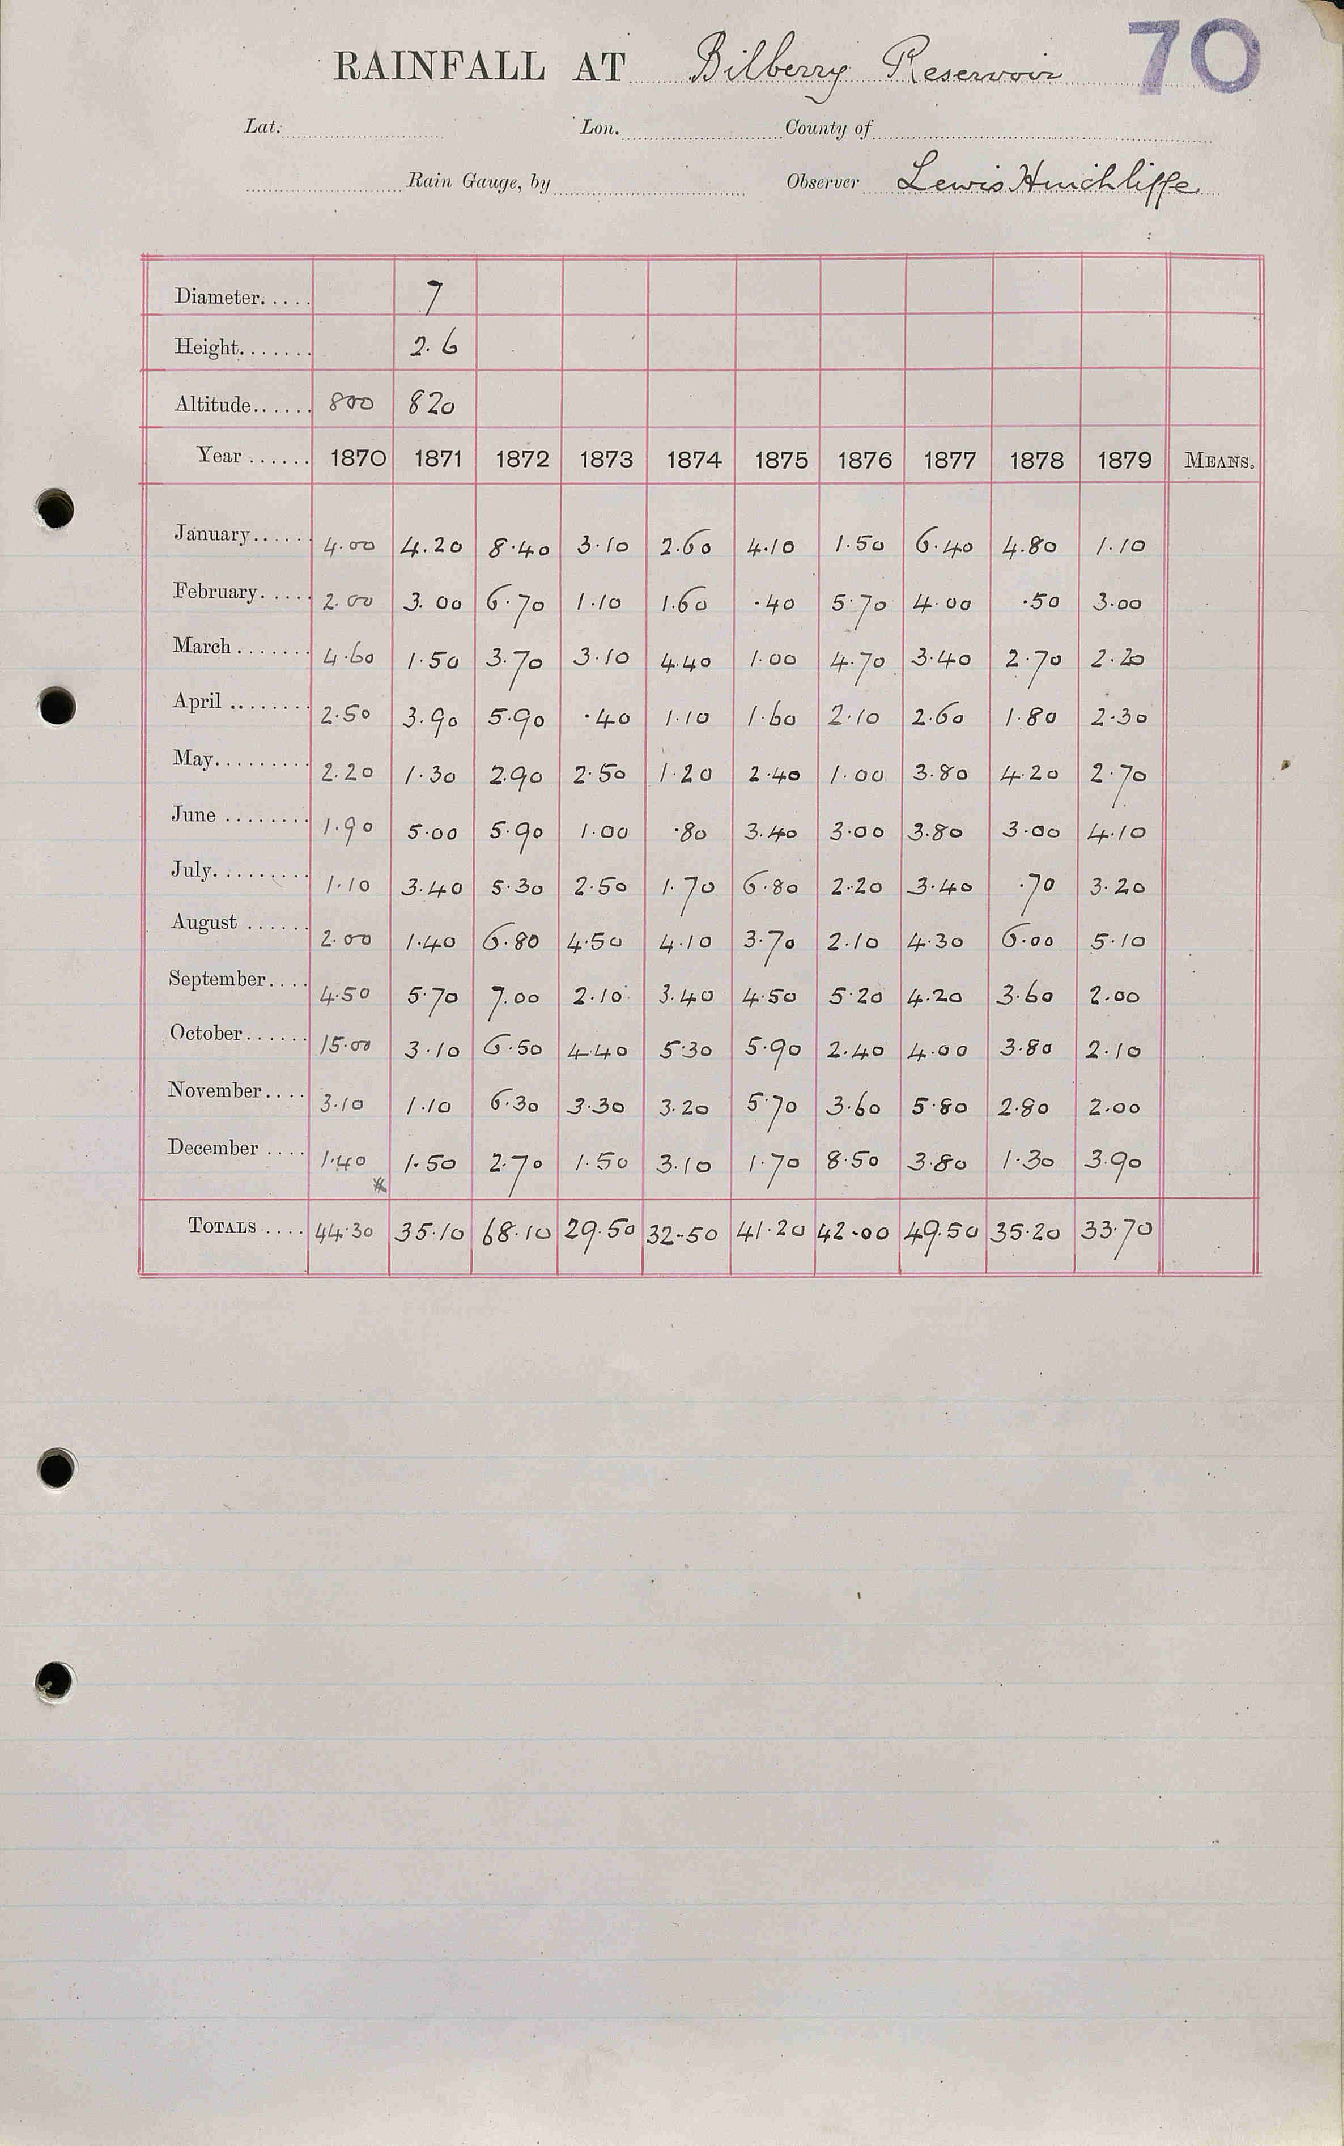 RAINFALL AT Bilberry Reservoir 70
Lat. Lon. County of
Rain Gauge, by Observer Lewis Hinchliffe
Diameter..... 7
Height....... 2.6
Altitude...... 800 820
Year ...... 1870 1871 1872 1873 1874 1875 1876 1877 1878 1879 MEANS.
January...... 4.00 4.20 8.40 3.10 2.60 4.10 1.50 6.40 4.80 1.10
February..... 2.00 3.00 6.70 1.10 1.60 .40 5.70 4.00 .50 3.00
March ....... 4.60 1.50 3.70 3.10 4.40 1.00 4.70 3.40 2.70 2.20
April ........ 2.50 3.90 5.90 .40 1.10 1.60 2.10 2.60 1.80 2.30
May......... 2.20 1.30 2.90 2.50 1.20 2.40 1.00 3.80 4.20 2.70
June ........ 1.90 5.00 5.90 1.00 .80 3.40 3.00 3.80 3.00 4.10
July......... 1.10 3.40 5.30 2.50 1.70 6.80 2.20 3.40 .70 3.20
August ...... 2.00 1.40 6.80 4.50 4.10 3.70 2.10 4.30 6.00 5.10
September.... 4.50 5.70 7.00 2.10 3.40 4.50 5.20 4.20 3.60 2.00
October...... 15.00 3.10 6.50 4.40 5.30 5.90 2.40 4.00 3.80 2.10
November.... 3.10 1.10 6.30 3.30 3.20 5.70 3.60 5.80 2.80 2.00
December .... 1.40 1.50 2.70 1.50 3.10 1.70 8.50 3.80 1.30 3.90
*
TOTALS .... 44.30 35.10 68.10 29.50 32.50 41.20 42.00 49.50 35.20 33.70